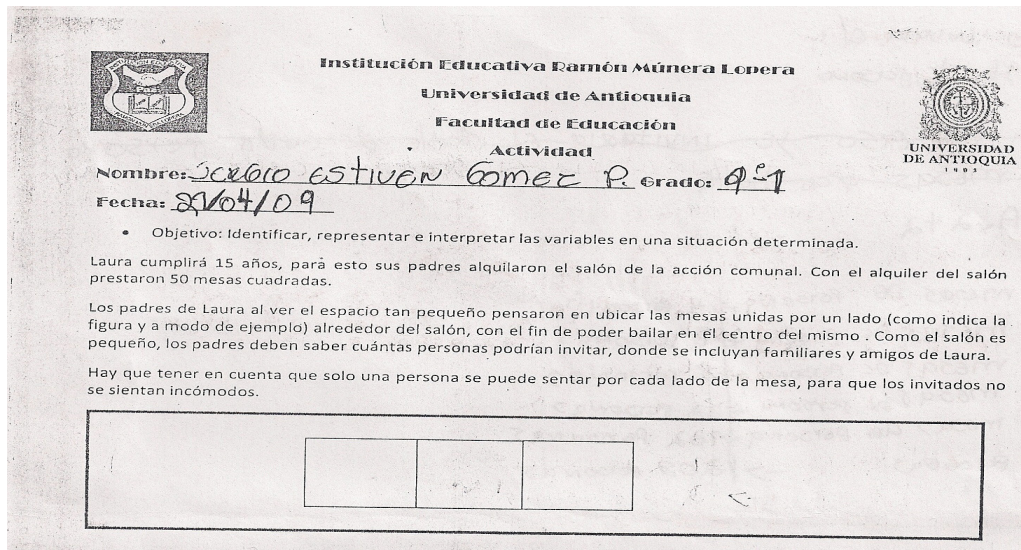 Institución Educativa Ramón Múnera Lopera
Universidad de Antioquia
Facultad de Educación
Actividad
UNIVERSIDAD
DE ANTIOQUIA
1803
Nombre: Sergio Estiven Gomez P. Grado: 9º1
Fecha: 27/04/09
• Objetivo: Identificar, representar e interpretar las variables en una situación determinada.
Laura cumplirá 15 años, para esto sus padres alquilaron el salón de la acción comunal. Con el alquiler del salón
prestaron 50 mesas cuadradas.
Los padres de Laura al ver el espacio tan pequeño pensaron en ubicar las mesas unidas por un lado (como indica la
figura y a modo de ejemplo) alrededor del salón, con el fin de poder bailar en el centro del mismo . Como el salón es
pequeño, los padres deben saber cuántas personas podrían invitar, donde se incluyan familiares y amigos de Laura.
Hay que tener en cuenta que solo una persona se puede sentar por cada lado de la mesa, para que los invitados no
se sientan incómodos.